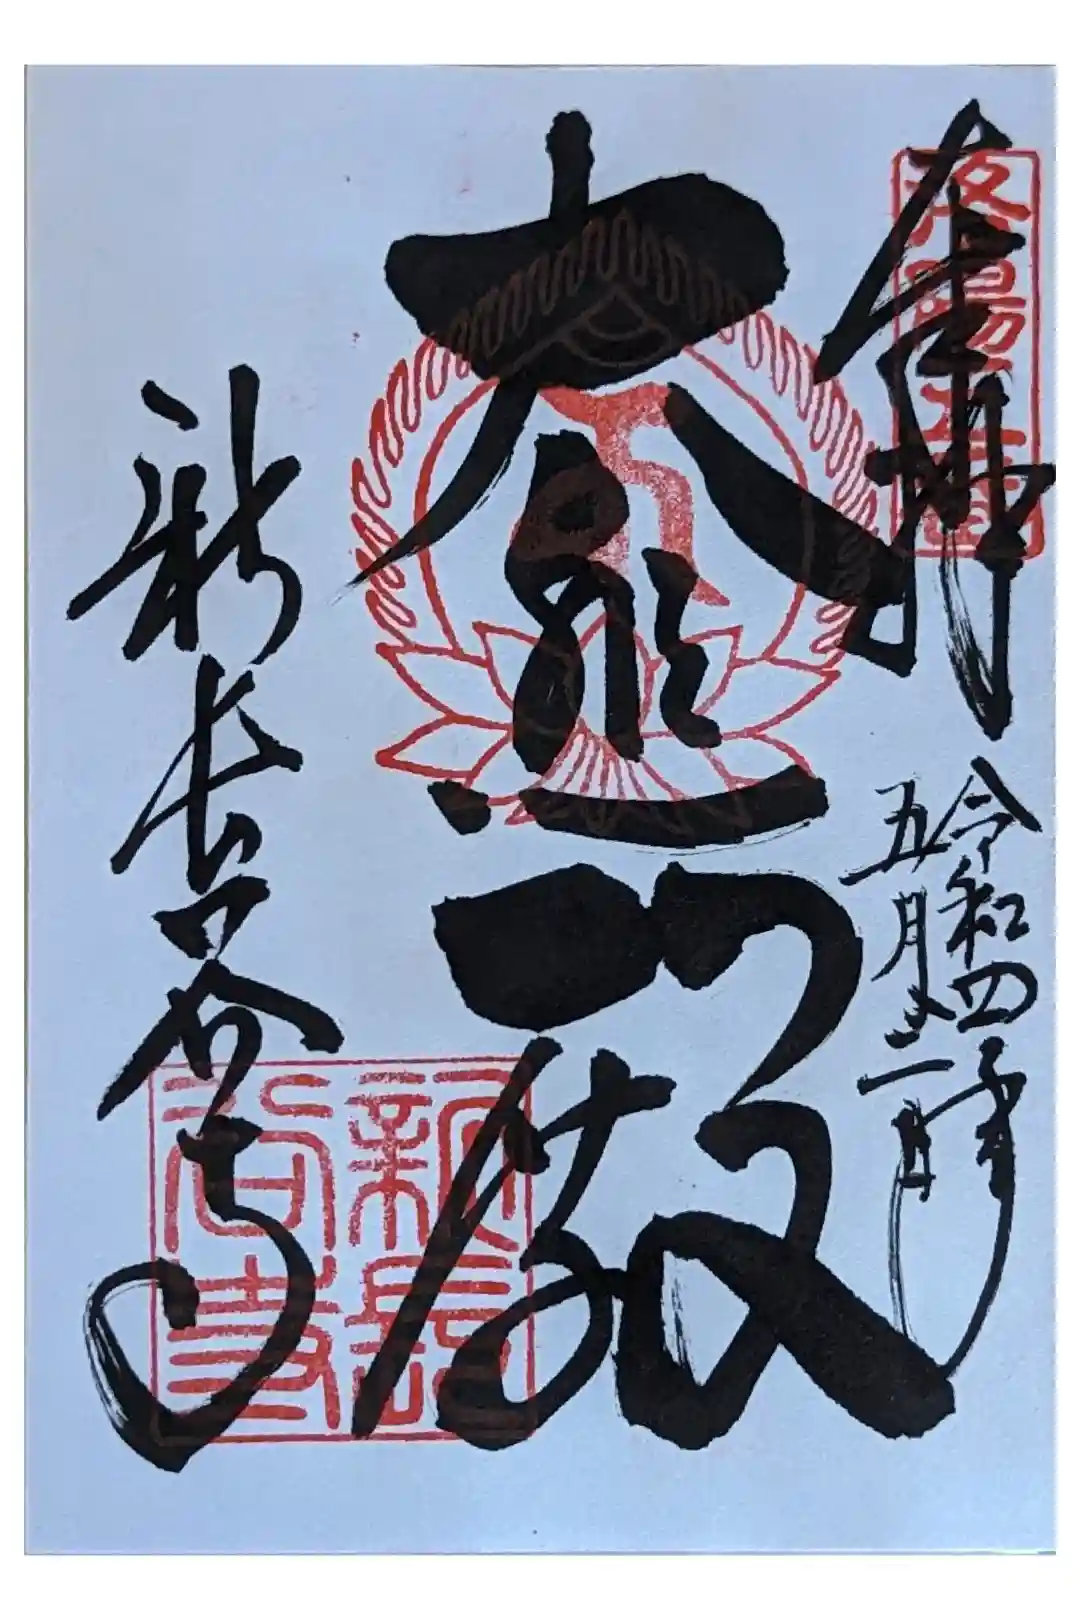 奉拝
洛陽五番
令和四年
五月三日
大悲殿
新長谷寺
新長谷寺